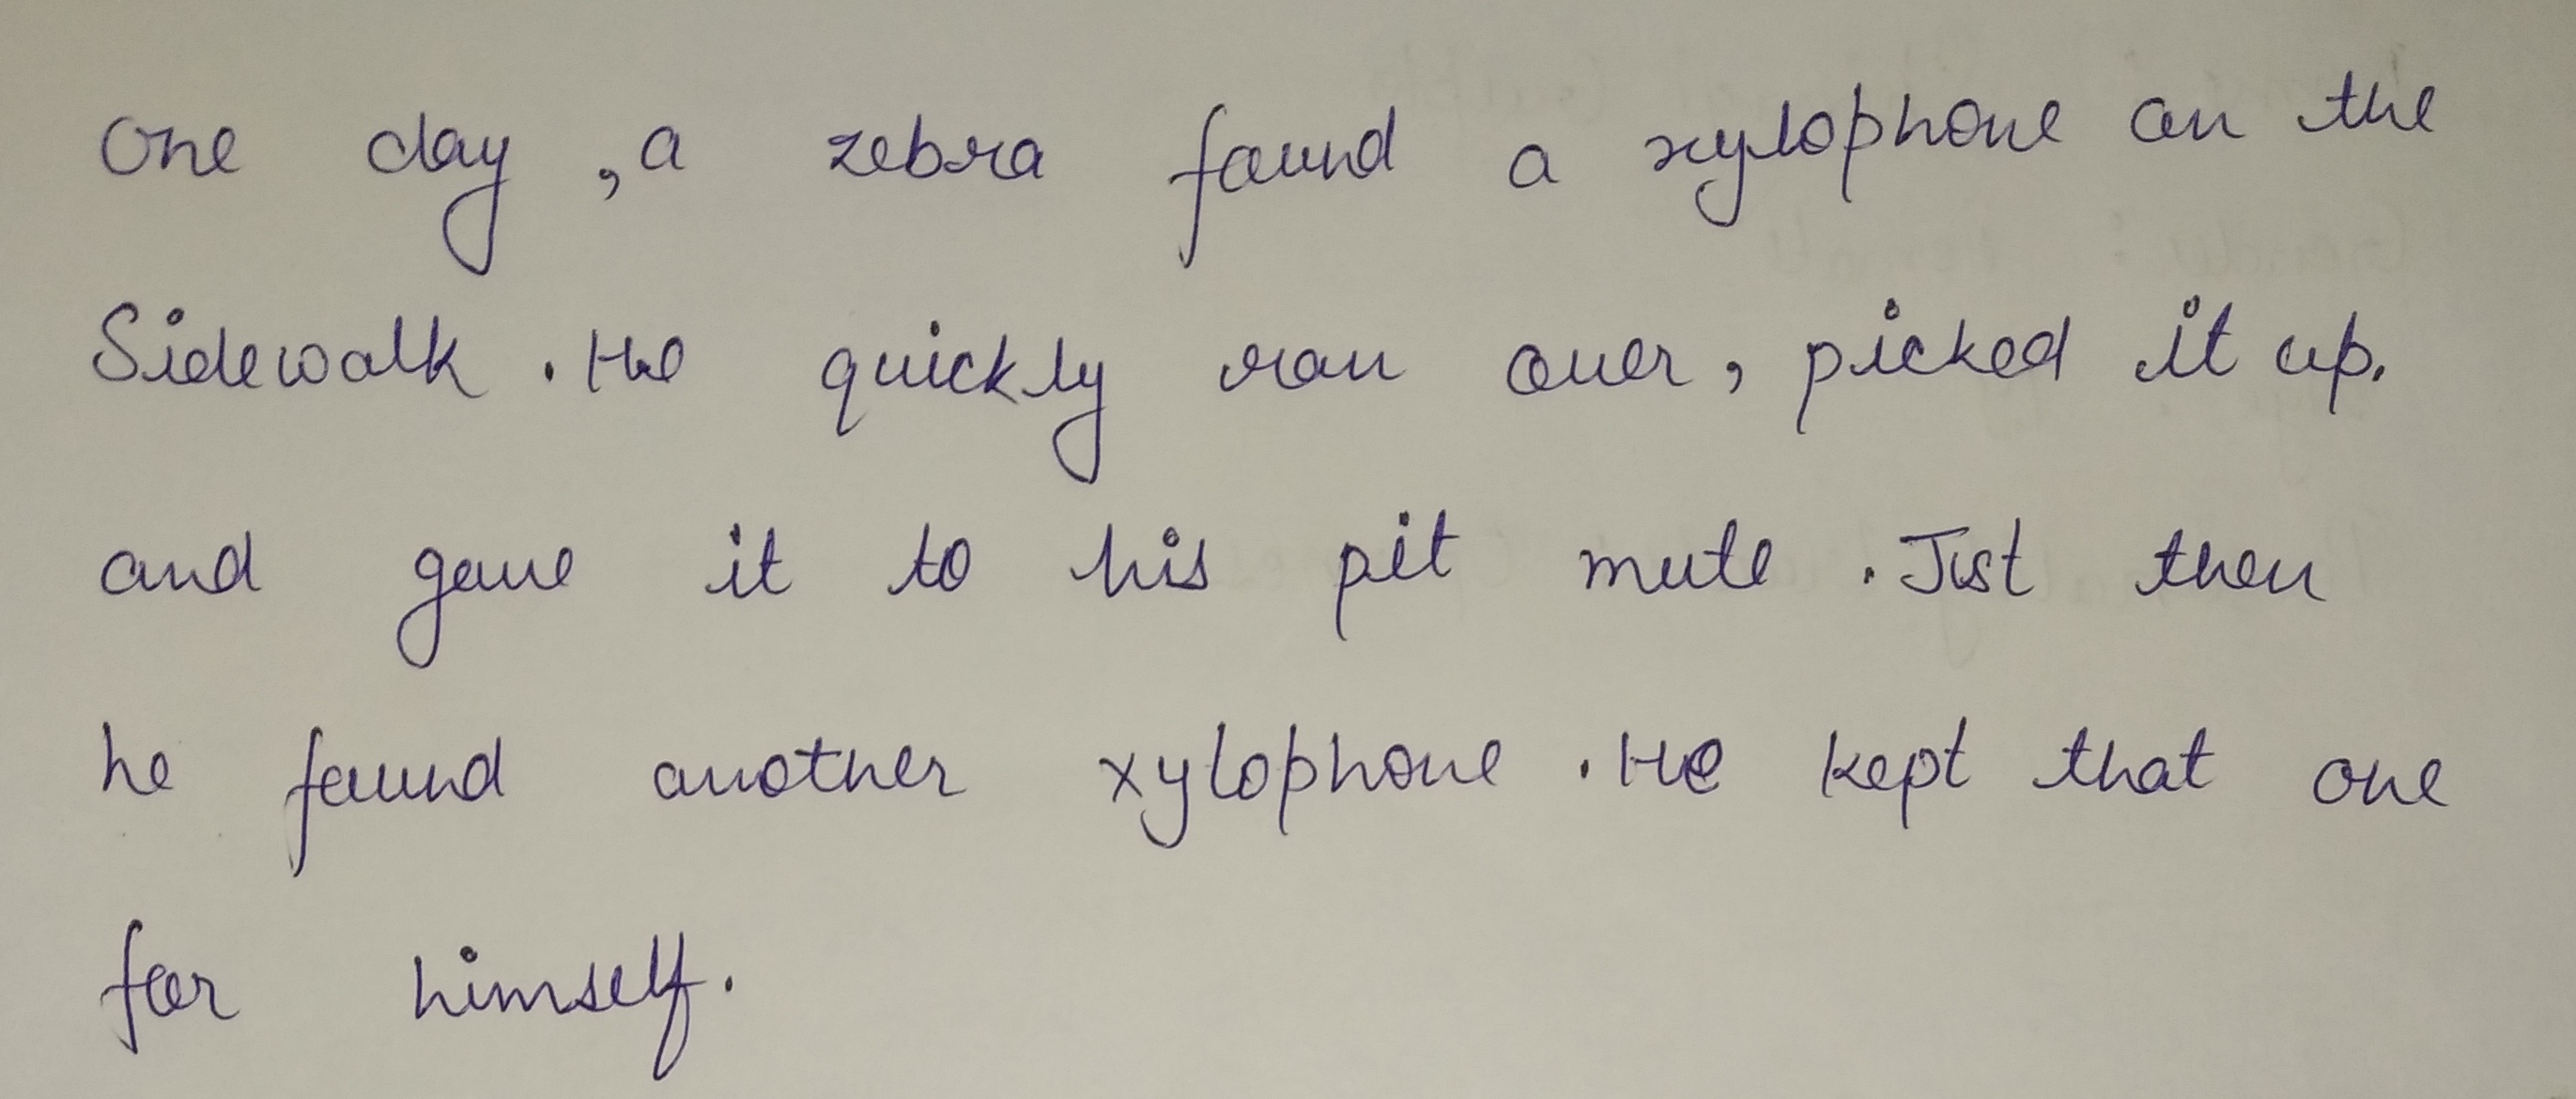 One day , a zebra found a xylophone on the
Sidewalk . He quickly ran over , picked it up.
and gave it to his pit mute . Just then
he found another xylophone . He kept that one
for himself .